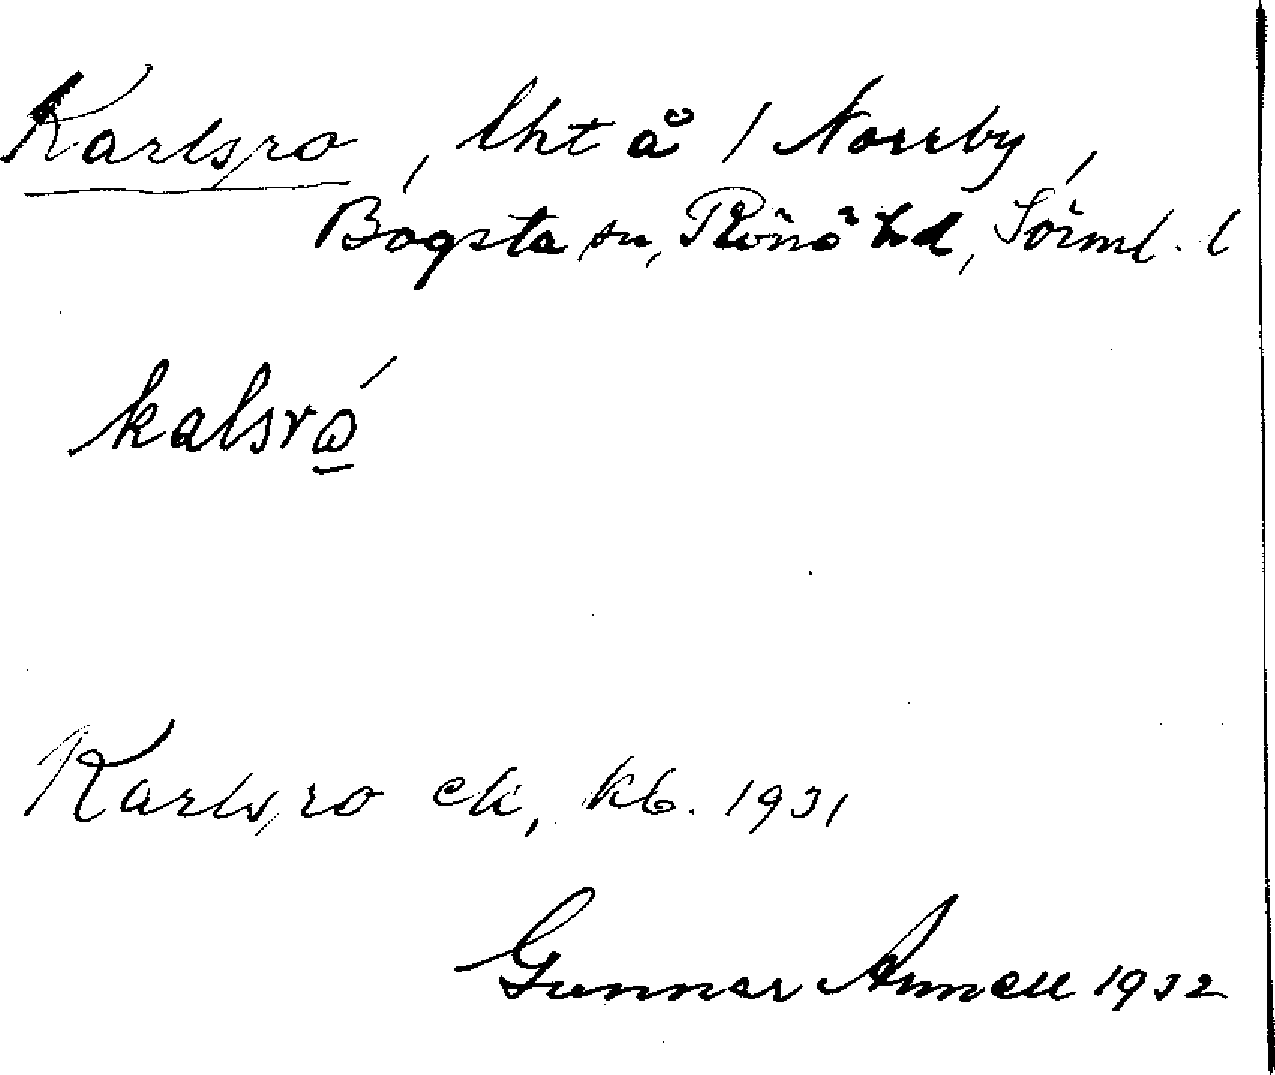 Karlsro, lht å / Norrby,
Bogsta sn, Rönö hd, Sörml. l
kalsrώ
Karlsro ek, kb. 1931
Gunnar Annell 1932